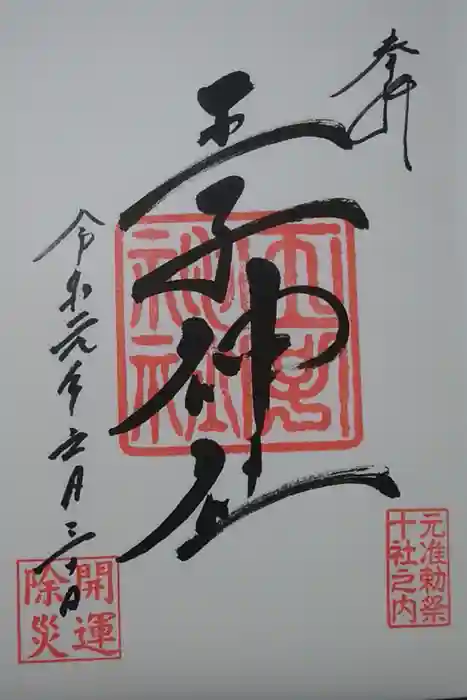 奉拝
王子神社
令和元年五月三十日
王子神社
元准勅祭
十社之内
開運
除災